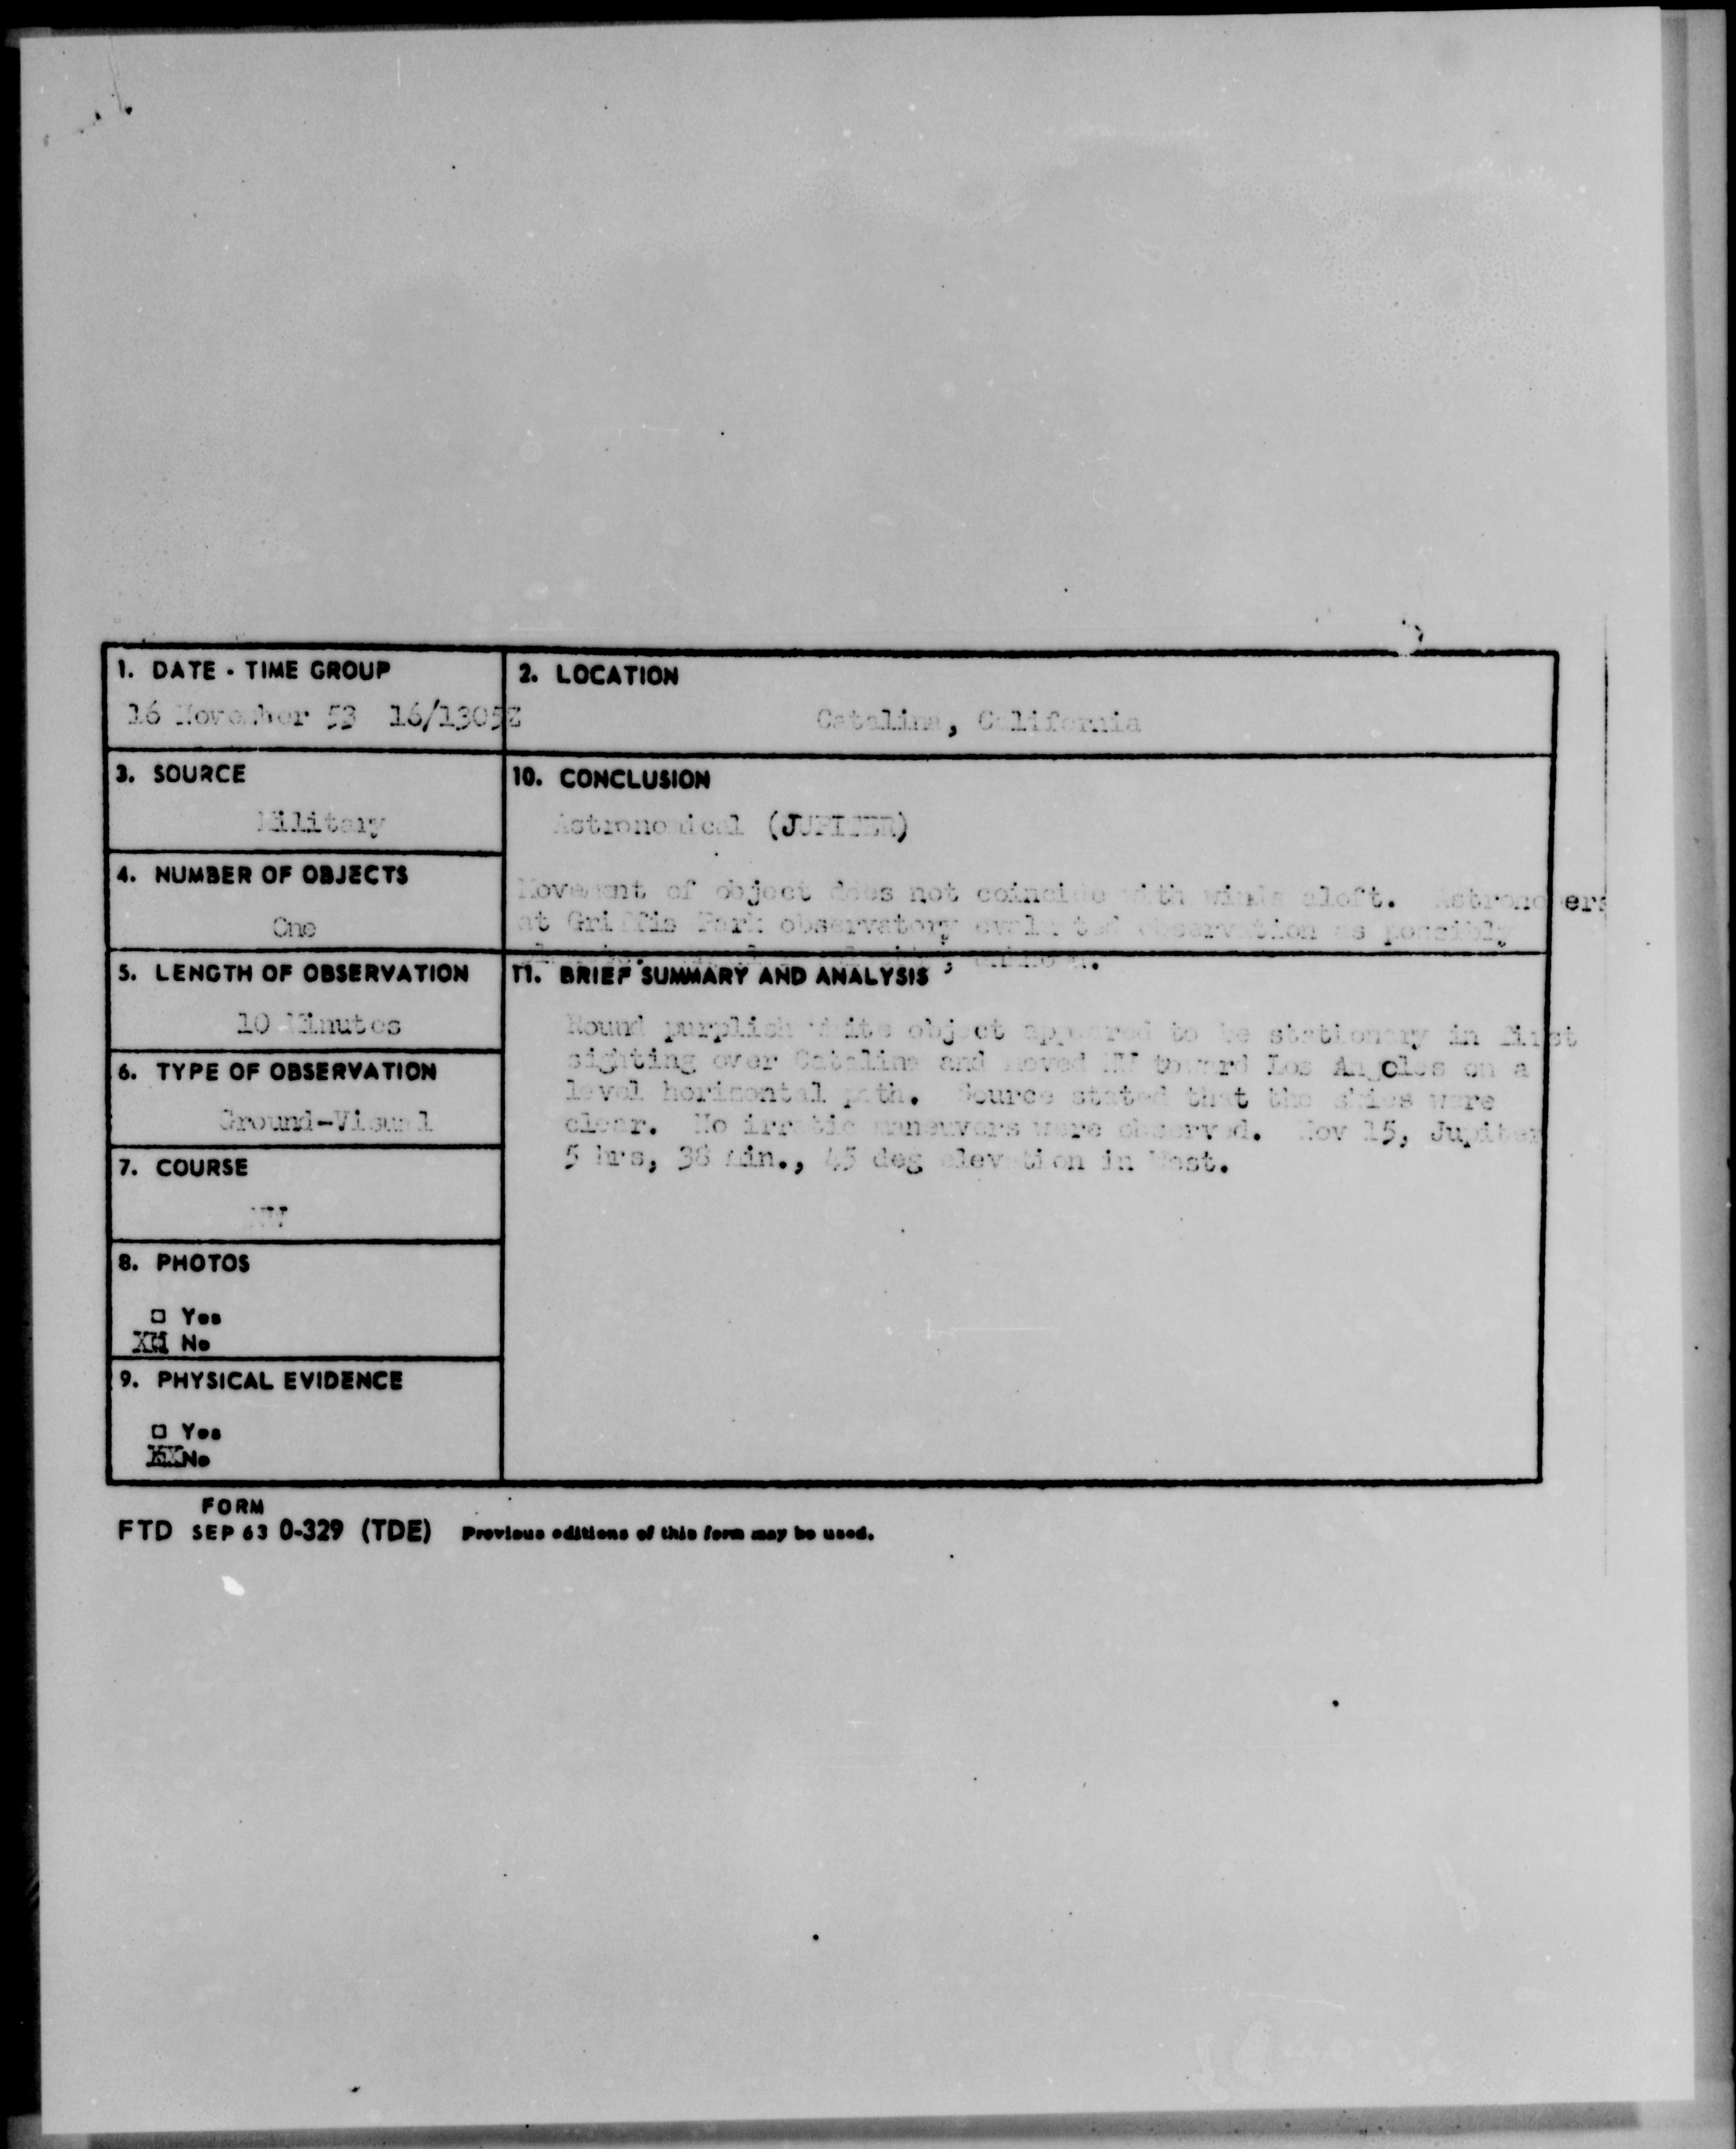 1. DATE - TIME GROUP
16 November 53 16/1305Z
2. LOCATION
Catalina, California
3. SOURCE
Military
10. CONCLUSION
Astronomical (JUPITER)
Movement of object does not coincide with winds aloft. Astronomers
at Griffis Park observatory evaluated observation as possibly
4. NUMBER OF OBJECTS
One
5. LENGTH OF OBSERVATION
10 Minutes
11. BRIEF SUMMARY AND ANALYSIS
Round purplish white object appeared to be stationary in first
sighting over Catalina and moved NW toward Los Angeles on a
level horizontal path. Source stated that the skies were
clear. No irratic maneuvers were observed. Nov 15, Jupiter
5 hrs, 38 Min., 45 deg elevation in West.
6. TYPE OF OBSERVATION
Ground-Visual
7. COURSE
NW
8. PHOTOS
□ Yes
XX No
9. PHYSICAL EVIDENCE
□ Yes
XX No
FORM
FTD SEP 63 0-329 (TDE) Previous editions of this form may be used.